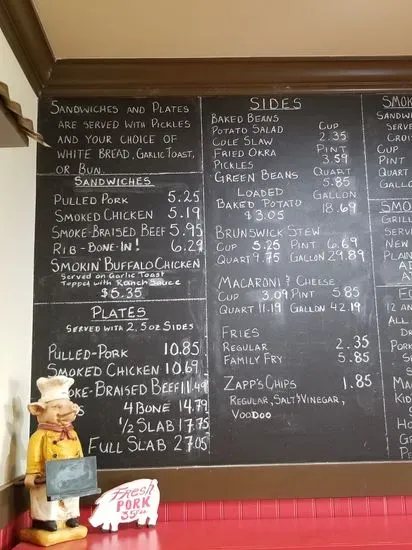 SANDWICHES AND PLATES
ARE SERVED WITH PICKLES
AND YOUR CHOICE OF
WHITE BREAD, GARLIC TOAST,
OR BUN.
SANDWICHES
PULLED PORK 5.25
SMOKED CHICKEN 5.19
SMOKE-BRAISED BEEF 5.95
RIB-BONE-IN! 6.29
SMOKIN' BUFFALO CHICKEN
Served on Garlic Toast
Topped with Ranch Sauce
$6.35
PLATES
SERVED WITH 2, 5oz SIDES
PULLED-PORK 10.85
SMOKED CHICKEN 10.69
SMOKE-BRAISED BEEF 11.49
4 BONE 14.79
1/2 SLAB 17.75
FULL SLAB 27.05
SIDES
BAKED BEANS
POTATO SALAD
COLE SLAW
FRIED OKRA
PICKLES
GREEN BEANS
CUP
2.35
PINT
3.59
QUART
5.85
GALLON
18.69
LOADED
BAKED POTATO
$3.05
BRUNSWICK STEW
CUP 5.25 PINT 6.69
QUART 9.75 GALLON 29.89
MACARONI & CHEESE
CUP 3.09 PINT 5.85
QUART 11.19 GALLON 42.19
FRIES
REGULAR 2.35
FAMILY FRY 5.85
ZAPP'S CHIPS 1.85
REGULAR, SALT & VINEGAR,
VOODOO
SMOK
SANDW
SERVE
CROIS
CUP
PINT
QUART
GALL
SMO
GRILL
SERV
NEW
PLAIN
12 AN
ALL
MA
KID
Fresh
PORK
35¢